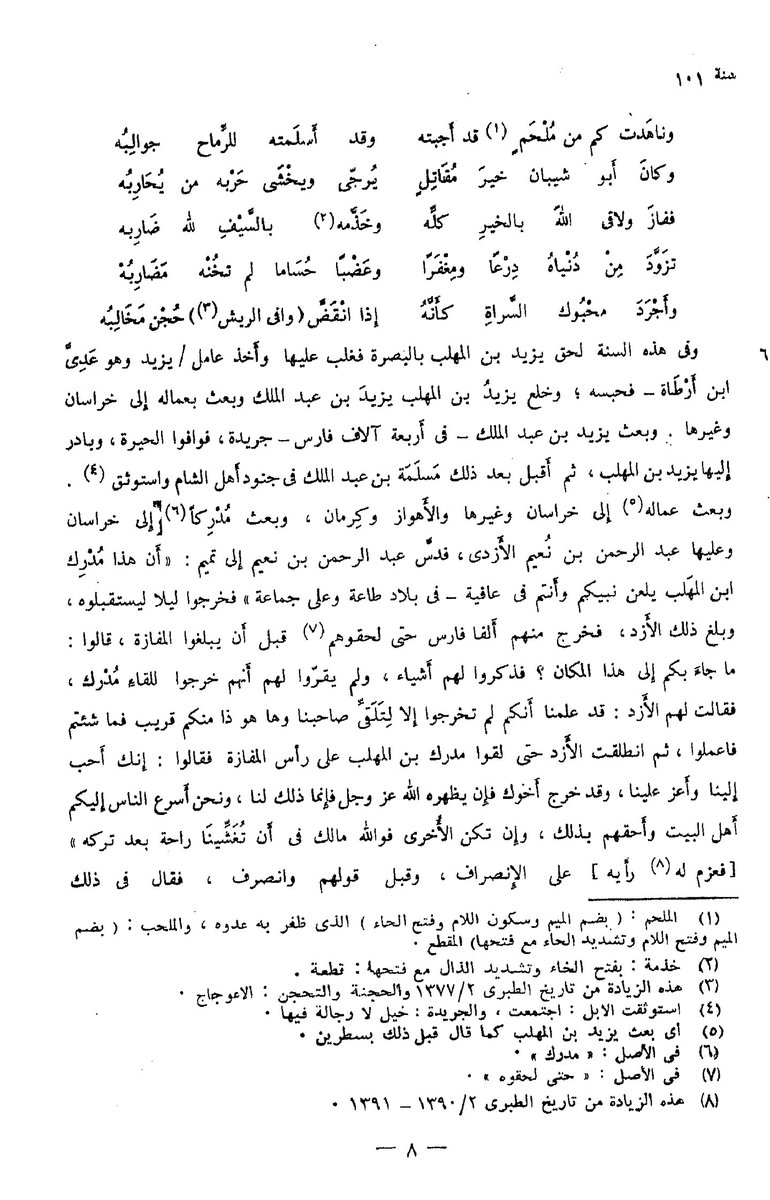 سنة ١٠١
وناهَدَت كم من مُلْحَمٍ (١) قد أجبته وقد أسلَمته للرِّماح جوالِبُه
وكانَ أبو شيبان خيرَ مُقَاتِلٍ يُرجّى ويخْشَى حَرْبه من يُحَارِبُه
ففازَ ولاقى اللهَ بالخيرِ كلَّه وخَذَّمه (٢) بالسَّيْفِ لله ضَارِبه
تزوَّدَ مِنْ دُنْياهُ دِرْعًا ومِغْفَرًا وعَضْبًا حُساما لم تخُنْه مَضَارِبُهْ
وأجْرَدَ محْبُوك السَّراةِ كأنَّهُ إذا انْقَضَّ (وافى الريش (٣)) حُجْن مَخَالِبُه
٦
وفى هذه السنة لحق يزيد بن المهلب بالبصرة فغلب عليها وأخذ عامل / يزيد وهو عَدِىَّ
ابن أرْطَاة – فحبسه ؛ وخلع يزيدُ بن المهلب يزيدَ بن عبد الملك وبعث بعماله إلى خراسان
وغيرها . وبعث يزيد بن عبد الملك – فى أربعة آلاف فارس – جريدة ، فوافوا الحيرة ، وبادر
إليها يزيد بن المهلب ، ثم أقبل بعد ذلك مَسلَمَة بن عبد الملك فى جنود أهل الشام واستوثق (٤) .
وبعث عماله (٥) إلى خراسان وغيرها والأهواز وكِرمان ، وبعث مُدْرِكاً (٦) إلى خراسان
وعليها عبد الرحمن بن نُعيم الأزدى ، فدسَّ عبد الرحمن بن نعيم إلى تميم : « أن هذا مُدْرِك
ابن المهَلب يلعن نبيكم وأنتم فى عافية – فى بلاد طاعة وعلى جماعة » فخرجوا ليلا ليستقبلوه ،
وبلغ ذلك الأزد ، فخرج منهم ألفا فارس حتى لحقوهم (٧) قبل أن يبلغوا المفازة ، قالوا :
ما جاءَ بكم إلى هذا المكان ؟ فذكروا لهم أشياء ، ولم يقرّوا لهم أنهم خرجوا للقاءِ مُدْرك ،
فقالت لهم الأزد : قد علمنا أنكم لم تخرجوا إلا لِتَلَقىِّ صاحبنا وها هو ذا منكم قريب فما شئتم
فاعملوا ، ثم انطلقت الأزد حتى لقوا مدرك بن المهلب على رأس المفازة فقالوا : إنك أحب
إلينا وأعز علينا ، وقد خرج أخوك فإن يظهره الله عز وجل فإنما ذلك لنا ، ونحن أسرع الناس إليكم
أهل البيت وأحقهم بذلك ، وإن تكن الأخرى فوالله مالك فى أن تُغَشِّينَا راحة بعد تركه »
[فعزم له (٨) رأيه] على الإنصراف ، وقبل قولهم وانصرف ، فقال فى ذلك
(١) الملحم : (بضم الميم وسكون اللام وفتح الحاء) الذى ظفر به عدوه ، والملحب : (بضم
الميم وفتح اللام وتشديد الحاء مع فتحها) المقطع .
(٢) خذمة : بفتح الخاء وتشديد الذال مع فتحها : قطعة .
(٣) هذه الزيادة من تاريخ الطبرى ١٣٧٧/٢ والحجنة والتحجن : الاعوجاج .
(٤) استوثقت الابل : اجتمعت ، والجريدة : خيل لا رجالة فيها .
(٥) أى بعث يزيد بن المهلب كما قال قبل ذلك بسطرين .
(٦) فى الأصل : « مدرك » .
(٧) فى الأصل : « حتى لحقوه » .
(٨) هذه الزيادة من تاريخ الطبرى ١٣٩٠/٢ – ١٣٩١ .
— ٨ —